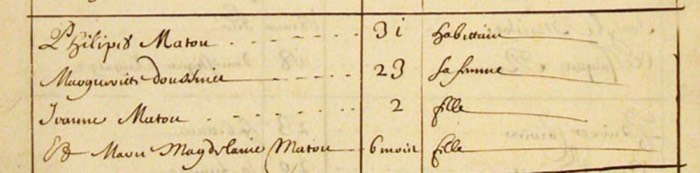 Philipes Matou 31 habittuin
Margueritte doussinet 23 sa femme
Jeanne Matou 2 fille
Et Marie Magdelaine Matou 6 mois fille